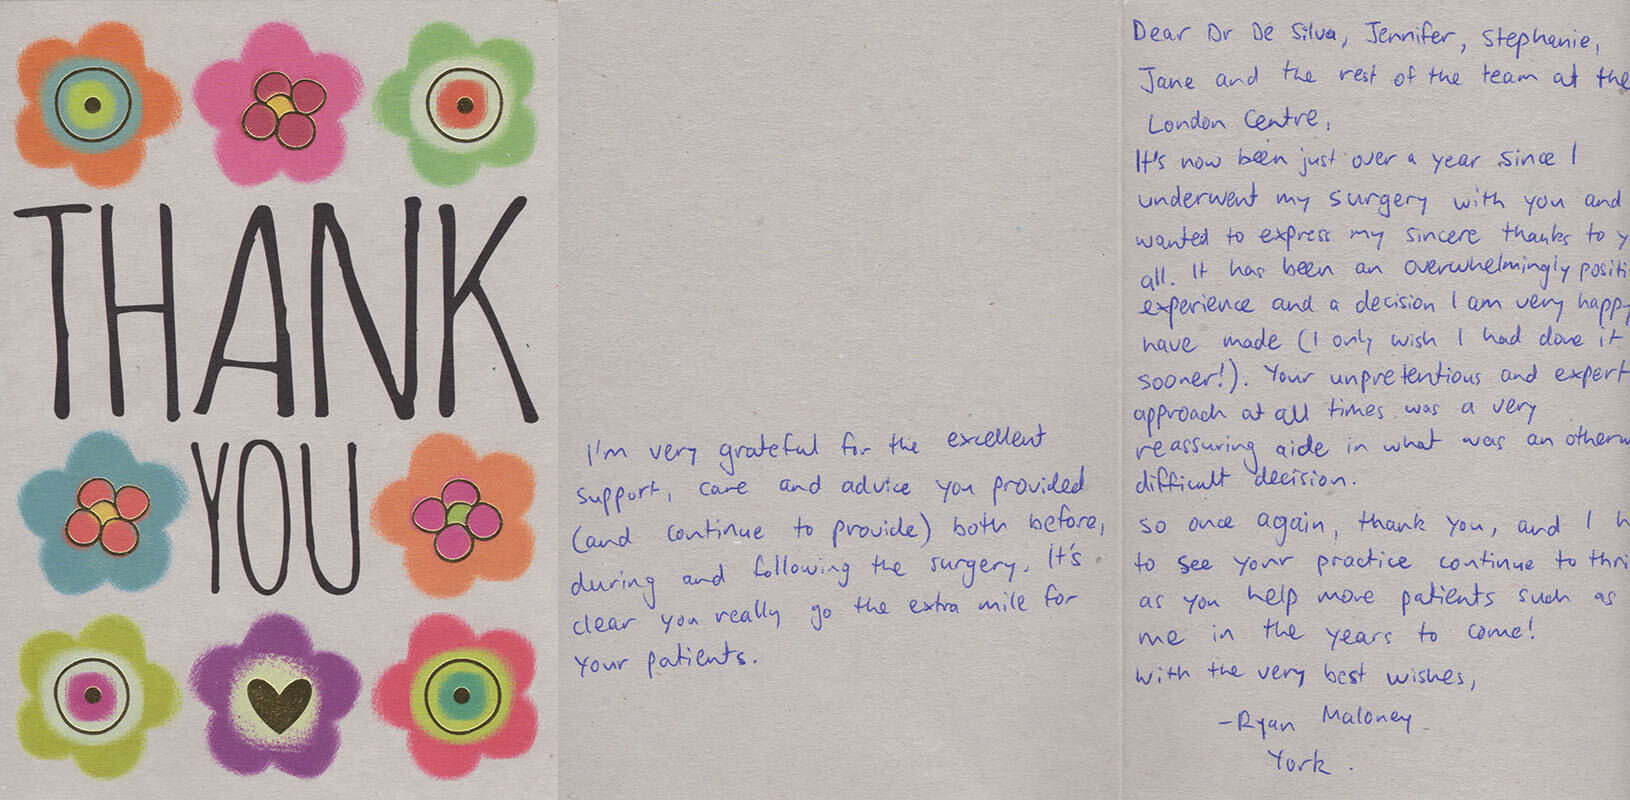 THANK
YOU
I'm very grateful for the excellent
support, care and advice you provided
(and continue to provide) both before,
during and following the surgery. It's
clear you really go the extra mile for
your patients.
Dear Dr De Silva, Jennifer, Stephanie,
Jane and the rest of the team at the
London Centre,
It's now been just over a year since I
underwent my surgery with you and
wanted to express my sincere thanks to y
all. It has been an overwhelmingly positi
experience and a decision I am very happy
have made (I only wish I had done it
sooner!). Your unpretentious and expert
approach at all times was a very
reassuring aide in what was an otherw
difficult decision.
So once again, thank you, and I h
to see your practice continue to thri
as you help more patients such as
me in the years to come!
With the very best wishes,
-Ryan Maloney
York.